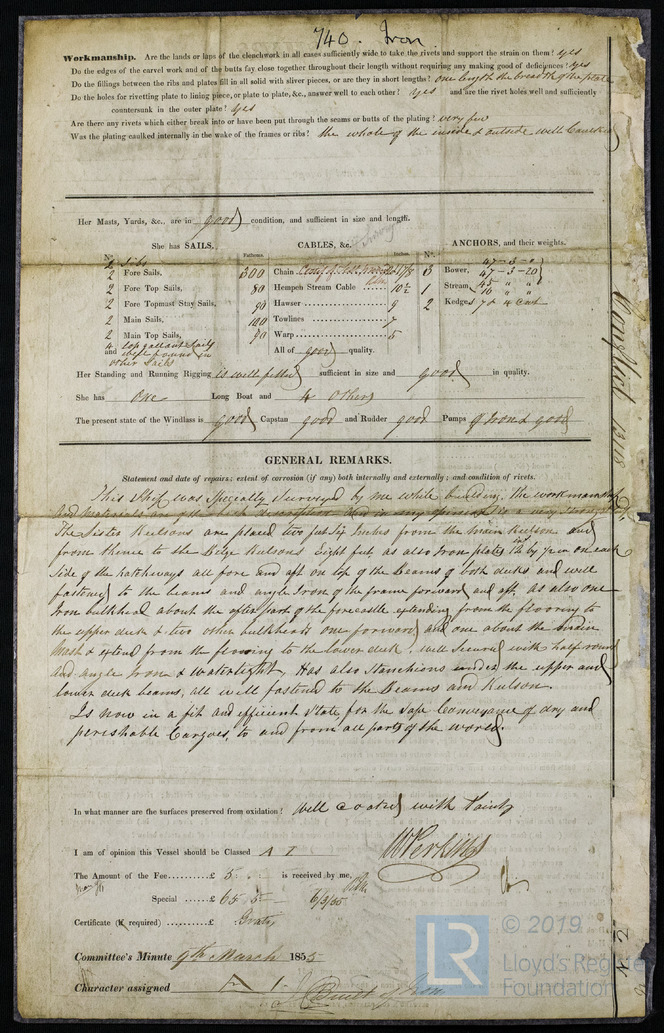 740. Iron
Workmanship. Are the lands or laps of the clenchwork in all cases sufficiently wide to take the rivets and support the strain on them? yes
Do the edges of the carvel work and of the butts fay close together throughout their length without requiring any making good of deficiences? yes
Do the fillings between the ribs and plates fill in all solid with sliver pieces, or are they in short lengths? one length the breadth of the plate
Do the holes for rivetting plate to lining piece, or plate to plate, &c., answer well to each other? yes and are the rivet holes well and sufficiently
countersunk in the outer plate? yes
Are there any rivets which either break into or have been put through the seams or butts of the plating? very few
Was the plating caulked internally in the wake of the frames or ribs? the whole of the inside & outside well Caulked
Her Masts, Yards, &c., are in good condition, and sufficient in size and length.
She has SAILS. CABLES, &c. ANCHORS, and their weights.
N° Fathoms. Inches. N°.
2 Jibs
2 Fore Sails, 300 Chain 1 7/8 3 Bower, 47 - 3 - 20
2 Fore Top Sails, 80 Hempen Stream Cable 10½ 1 Stream
2 Fore Topmast Stay Sails, 90 Hawser 9 2 Kedges
2 Main Sails, 100 Towlines 7
2 Main Top Sails, 90 Warp 5
4 top gallant Sails
and well found in
other Sails
All of good quality.
Her Standing and Running Rigging is well fitted sufficient in size and good in quality.
She has One Long Boat and 4 Others
The present state of the Windlass is good Capstan good and Rudder good Pumps of Iron & good
GENERAL REMARKS.
Statement and date of repairs: extent of corrosion (if any) both internally and externally; and condition of rivets.
This Ship was Specially Surveyed by me while building, the workmanship
and materials
The Sister Kelsons are placed two feet Six Inches from the main Kelson and
from thence to the Bilge Kelsons Eight feet, as also Iron plates by on each
Side of the hatchways all fore and aft on top of the Beams of both decks and well
fastened to the beams and angle Iron of the frame forward and aft, as also one
Iron bulkhead about the after part of the forecastle extending from the flooring to
the upper deck & two other bulkheads one forward and one about the
Mast & extend from the flooring to the lower deck. well Secured with half round
and angle Iron & watertight, Has also Stanchions under the upper and
lower deck beams, all well fastend to the Beams and Kelson.
Is now in a fit and efficient State for the Safe Conveyance of dry and
perishable Cargoes, to and from all parts of the world.
In what manner are the surfaces preserved from oxidation? Well coated with Paint
I am of opinion this Vessel should be Classed A 1
W Perkins
The Amount of the Fee £ 5 . - . is received by me,
Special £ 65 5 - 6/3/55
Certificate (if required) £ Gratis
Committee's Minute 9th March 1855
Character assigned A 1
Built of Iron
LR
© 2019
Lloyd's Register
Foundation